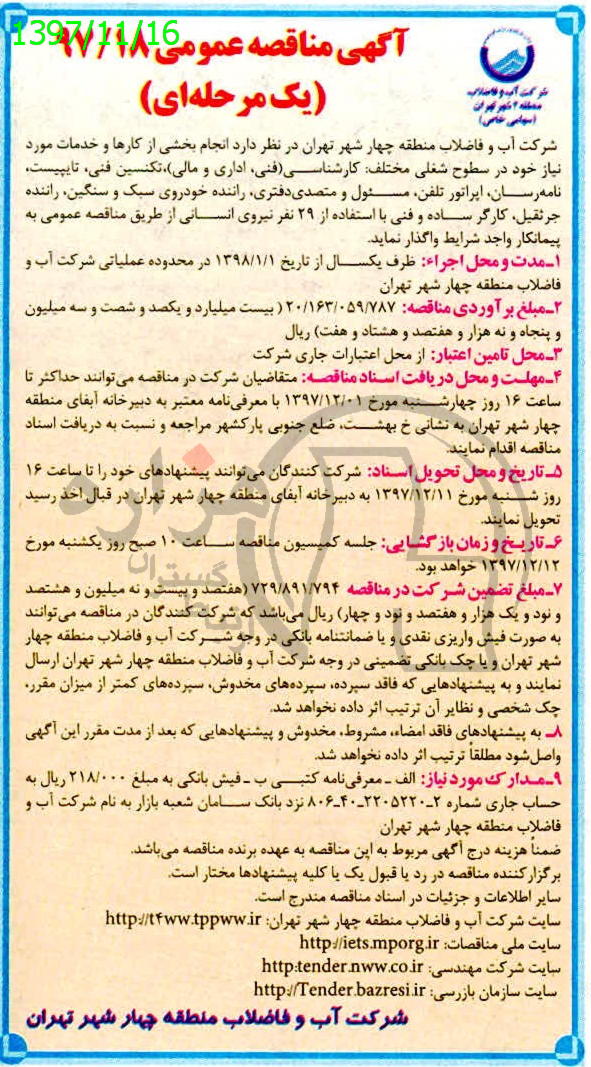 1397/11/16
آگهی مناقصه عمومی ۹۷/۱۸
(یک مرحله‌ای)
شرکت آب و فاضلاب
منطقه ۴ شهر تهران
(سهامی خاص)
شرکت آب و فاضلاب منطقه چهار شهر تهران در نظر دارد انجام بخشی از کارها و خدمات مورد
نیاز خود در سطوح شغلی مختلف: کارشناسی(فنی، اداری و مالی)،تکنسین فنی، تایپیست،
نامه‌رسان، اپراتور تلفن، مسئول و متصدی‌دفتری، راننده خودروی سبک و سنگین، راننده
جرثقیل، کارگر ساده و فنی با استفاده از ۲۹ نفر نیروی انسانی از طریق مناقصه عمومی به
پیمانکار واجد شرایط واگذار نماید.
۱ـ مدت و محل اجراء: ظرف یکسال از تاریخ ۱۳۹۸/۱/۱ در محدوده عملیاتی شرکت آب و
فاضلاب منطقه چهار شهر تهران
۲ـ مبلغ برآوردی مناقصه: ۲۰/۱۶۳/۰۵۹/۷۸۷ ( بیست میلیارد و یکصد و شصت و سه میلیون
و پنجاه و نه هزار و هفتصد و هشتاد و هفت) ریال
۳ـ محل تامین اعتبار: از محل اعتبارات جاری شرکت
۴ـ مهلت و محل دریافت اسناد مناقصه: متقاضیان شرکت در مناقصه می‌توانند حداکثر تا
ساعت ۱۶ روز چهارشنبه مورخ ۱۳۹۷/۱۲/۰۱ با معرفی‌نامه معتبر به دبیرخانه آبفای منطقه
چهار شهر تهران به نشانی خ بهشت، ضلع جنوبی پارکشهر مراجعه و نسبت به دریافت اسناد
مناقصه اقدام نمایند.
۵ـ تاریخ و محل تحویل اسناد: شرکت کنندگان می‌توانند پیشنهادهای خود را تا ساعت ۱۶
روز شنبه مورخ ۱۳۹۷/۱۲/۱۱ به دبیرخانه آبفای منطقه چهار شهر تهران در قبال اخذ رسید
تحویل نمایند.
۶ـ تاریخ و زمان بازگشایی: جلسه کمیسیون مناقصه ساعت ۱۰ صبح روز یکشنبه مورخ
۱۳۹۷/۱۲/۱۲ خواهد بود.
۷ـ مبلغ تضمین شرکت در مناقصه ۷۲۹/۸۹۱/۷۹۴ (هفتصد و بیست و نه میلیون و هشتصد
و نود و یک هزار و هفتصد و نود و چهار) ریال می‌باشد که شرکت کنندگان در مناقصه می‌توانند
به صورت فیش واریزی نقدی و یا ضمانتنامه بانکی در وجه شرکت آب و فاضلاب منطقه چهار
شهر تهران و یا چک بانکی تضمینی در وجه شرکت آب و فاضلاب منطقه چهار شهر تهران ارسال
نمایند و به پیشنهادهایی که فاقد سپرده، سپرده‌های مخدوش، سپرده‌های کمتر از میزان مقرر،
چک شخصی و نظایر آن ترتیب اثر داده نخواهد شد.
۸ـ به پیشنهادهای فاقد امضاء، مشروط، مخدوش و پیشنهادهایی که بعد از مدت مقرر این آگهی
واصل‌شود مطلقاً ترتیب اثر داده نخواهد شد.
۹ـ مدارک مورد نیاز: الف ـ معرفی‌نامه کتبی ب ـ فیش بانکی به مبلغ ۲۱۸/۰۰۰ ریال به
حساب جاری شماره ۲ـ۲۲۰۵۲۲۰ـ۴۰ـ۸۰۶ نزد بانک سامان شعبه بازار به نام شرکت آب و
فاضلاب منطقه چهار شهر تهران
ضمناً هزینه درج آگهی مربوط به این مناقصه به عهده برنده مناقصه می‌باشد.
برگزارکننده مناقصه در رد یا قبول یک یا کلیه پیشنهادها مختار است.
سایر اطلاعات و جزئیات در اسناد مناقصه مندرج است.
سایت شرکت آب و فاضلاب منطقه چهار شهر تهران: http://t۴ww.tppww.ir
سایت ملی مناقصات: http://iets.mporg.ir
سایت شرکت مهندسی: http:tender.nww.co.ir
سایت سازمان بازرسی: http://Tender.bazresi.ir
شرکت آب و فاضلاب منطقه چهار شهر تهران
هزاره
گستران